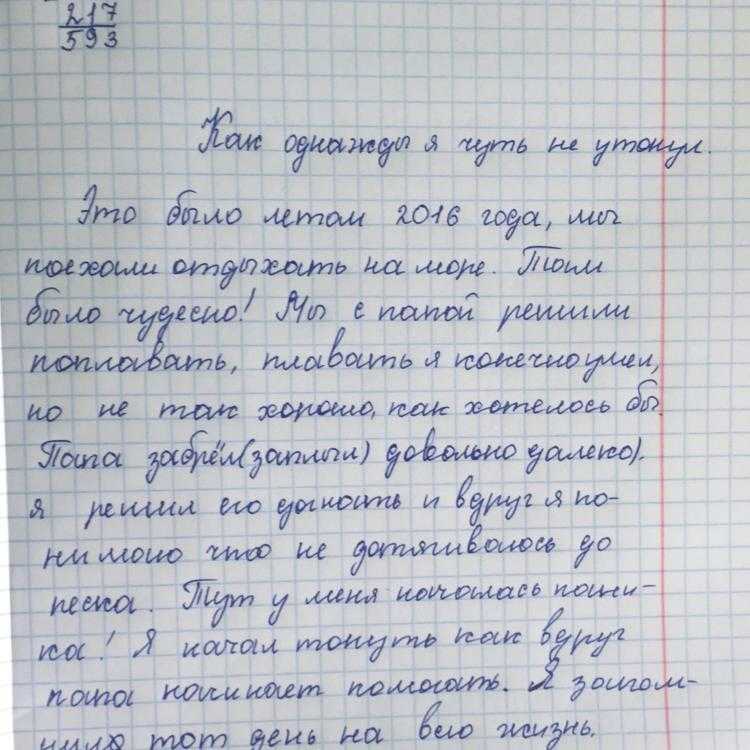 217
593
Как однажды я чуть не утонул.
Это было летом 2016 года, мы
поехали отдыхать на море. Там
было чудесно! Мы с папой решили
поплавать, плавать я конечно умел,
но не так хорошо, как хотелось бы.
Папа забрёл(заплыл) довольно далеко).
я решил его догнать и вдруг я по-
нимаю что не дотягиваюсь до
песка. Тут у меня началась пани-
ка! Я начал тонуть как вдруг
папа начинает помогать. Я запом-
нил тот день на всю жизнь.